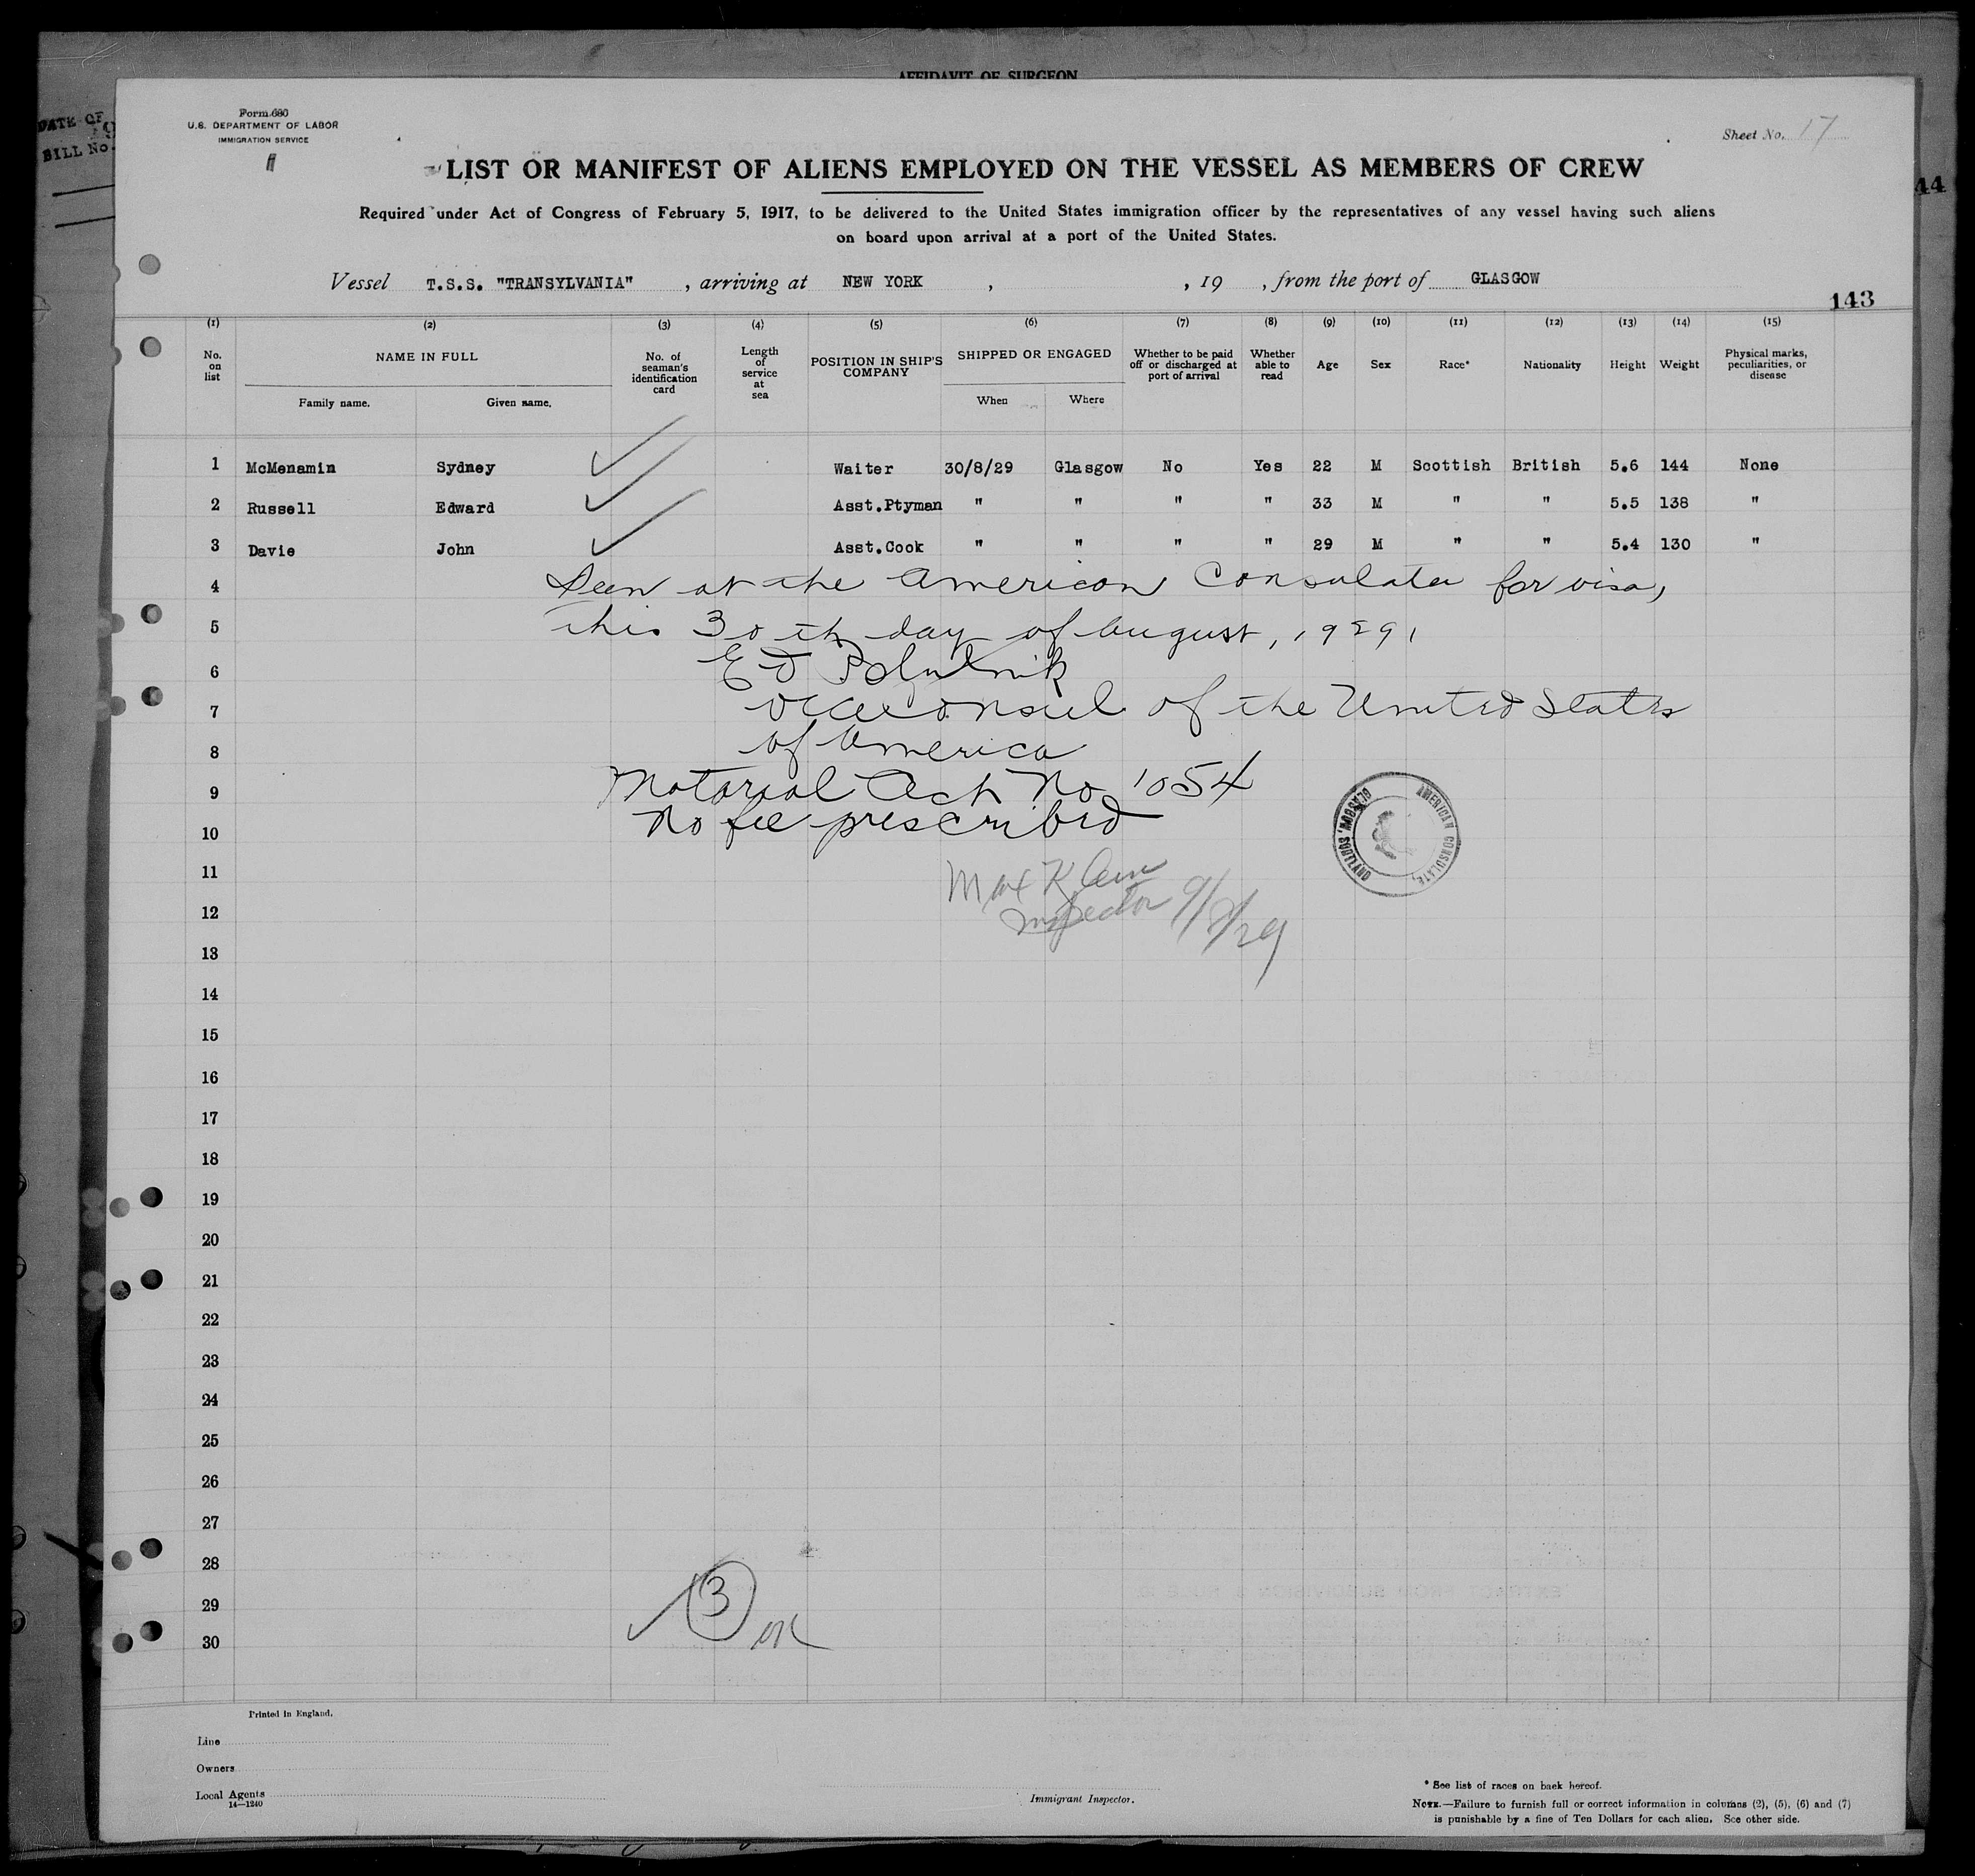 AFFIDAVIT OF SURGEON
DATE OF
BILL No.
44
Form 680
U.S. DEPARTMENT OF LABOR
IMMIGRATION SERVICE
Sheet No. 17
LIST OR MANIFEST OF ALIENS EMPLOYED ON THE VESSEL AS MEMBERS OF CREW
Required under Act of Congress of February 5, 1917, to be delivered to the United States immigration officer by the representatives of any vessel having such aliens
on board upon arrival at a port of the United States.
Vessel T.S.S. "TRANSYLVANIA" , arriving at NEW YORK , , 19 , from the port of GLASGOW
143
(1) (2) (3) (4) (5) (6) (7) (8) (9) (10) (11) (12) (13) (14) (15)
No. on list NAME IN FULL Family name. Given name. No. of seaman's identification card Length of service at sea POSITION IN SHIP'S COMPANY SHIPPED OR ENGAGED When Where Whether to be paid off or discharged at port of arrival Whether able to read Age Sex Race* Nationality Height Weight Physical marks, peculiarities, or disease
1 McMenamin Sydney Waiter 30/8/29 Glasgow No Yes 22 M Scottish British 5.6 144 None
2 Russell Edward Asst.Ptyman " " " " 33 M " " 5.5 138 "
3 Davie John Asst.Cook " " " " 29 M " " 5.4 130 "
4 Seen at the American Consulate for visa,
5 this 30th day of August, 1929,
6 E
7 Vice Consul of the United States
8 of America
9 Notarial Act No 1054
10 No fee prescribed
AMERICAN CONSULATE, GLASGOW, SCOTLAND
11 Max
12 Inspector
13
14
15
16
17
18
19
20
21
22
23
24
25
26
27
28
29 3
30 OK
Printed in England.
Line
Owners
Local Agents
14—1240
Immigrant Inspector.
* See list of races on back hereof.
NOTE.—Failure to furnish full or correct information in columns (2), (5), (6) and (7)
is punishable by a fine of Ten Dollars for each alien. See other side.